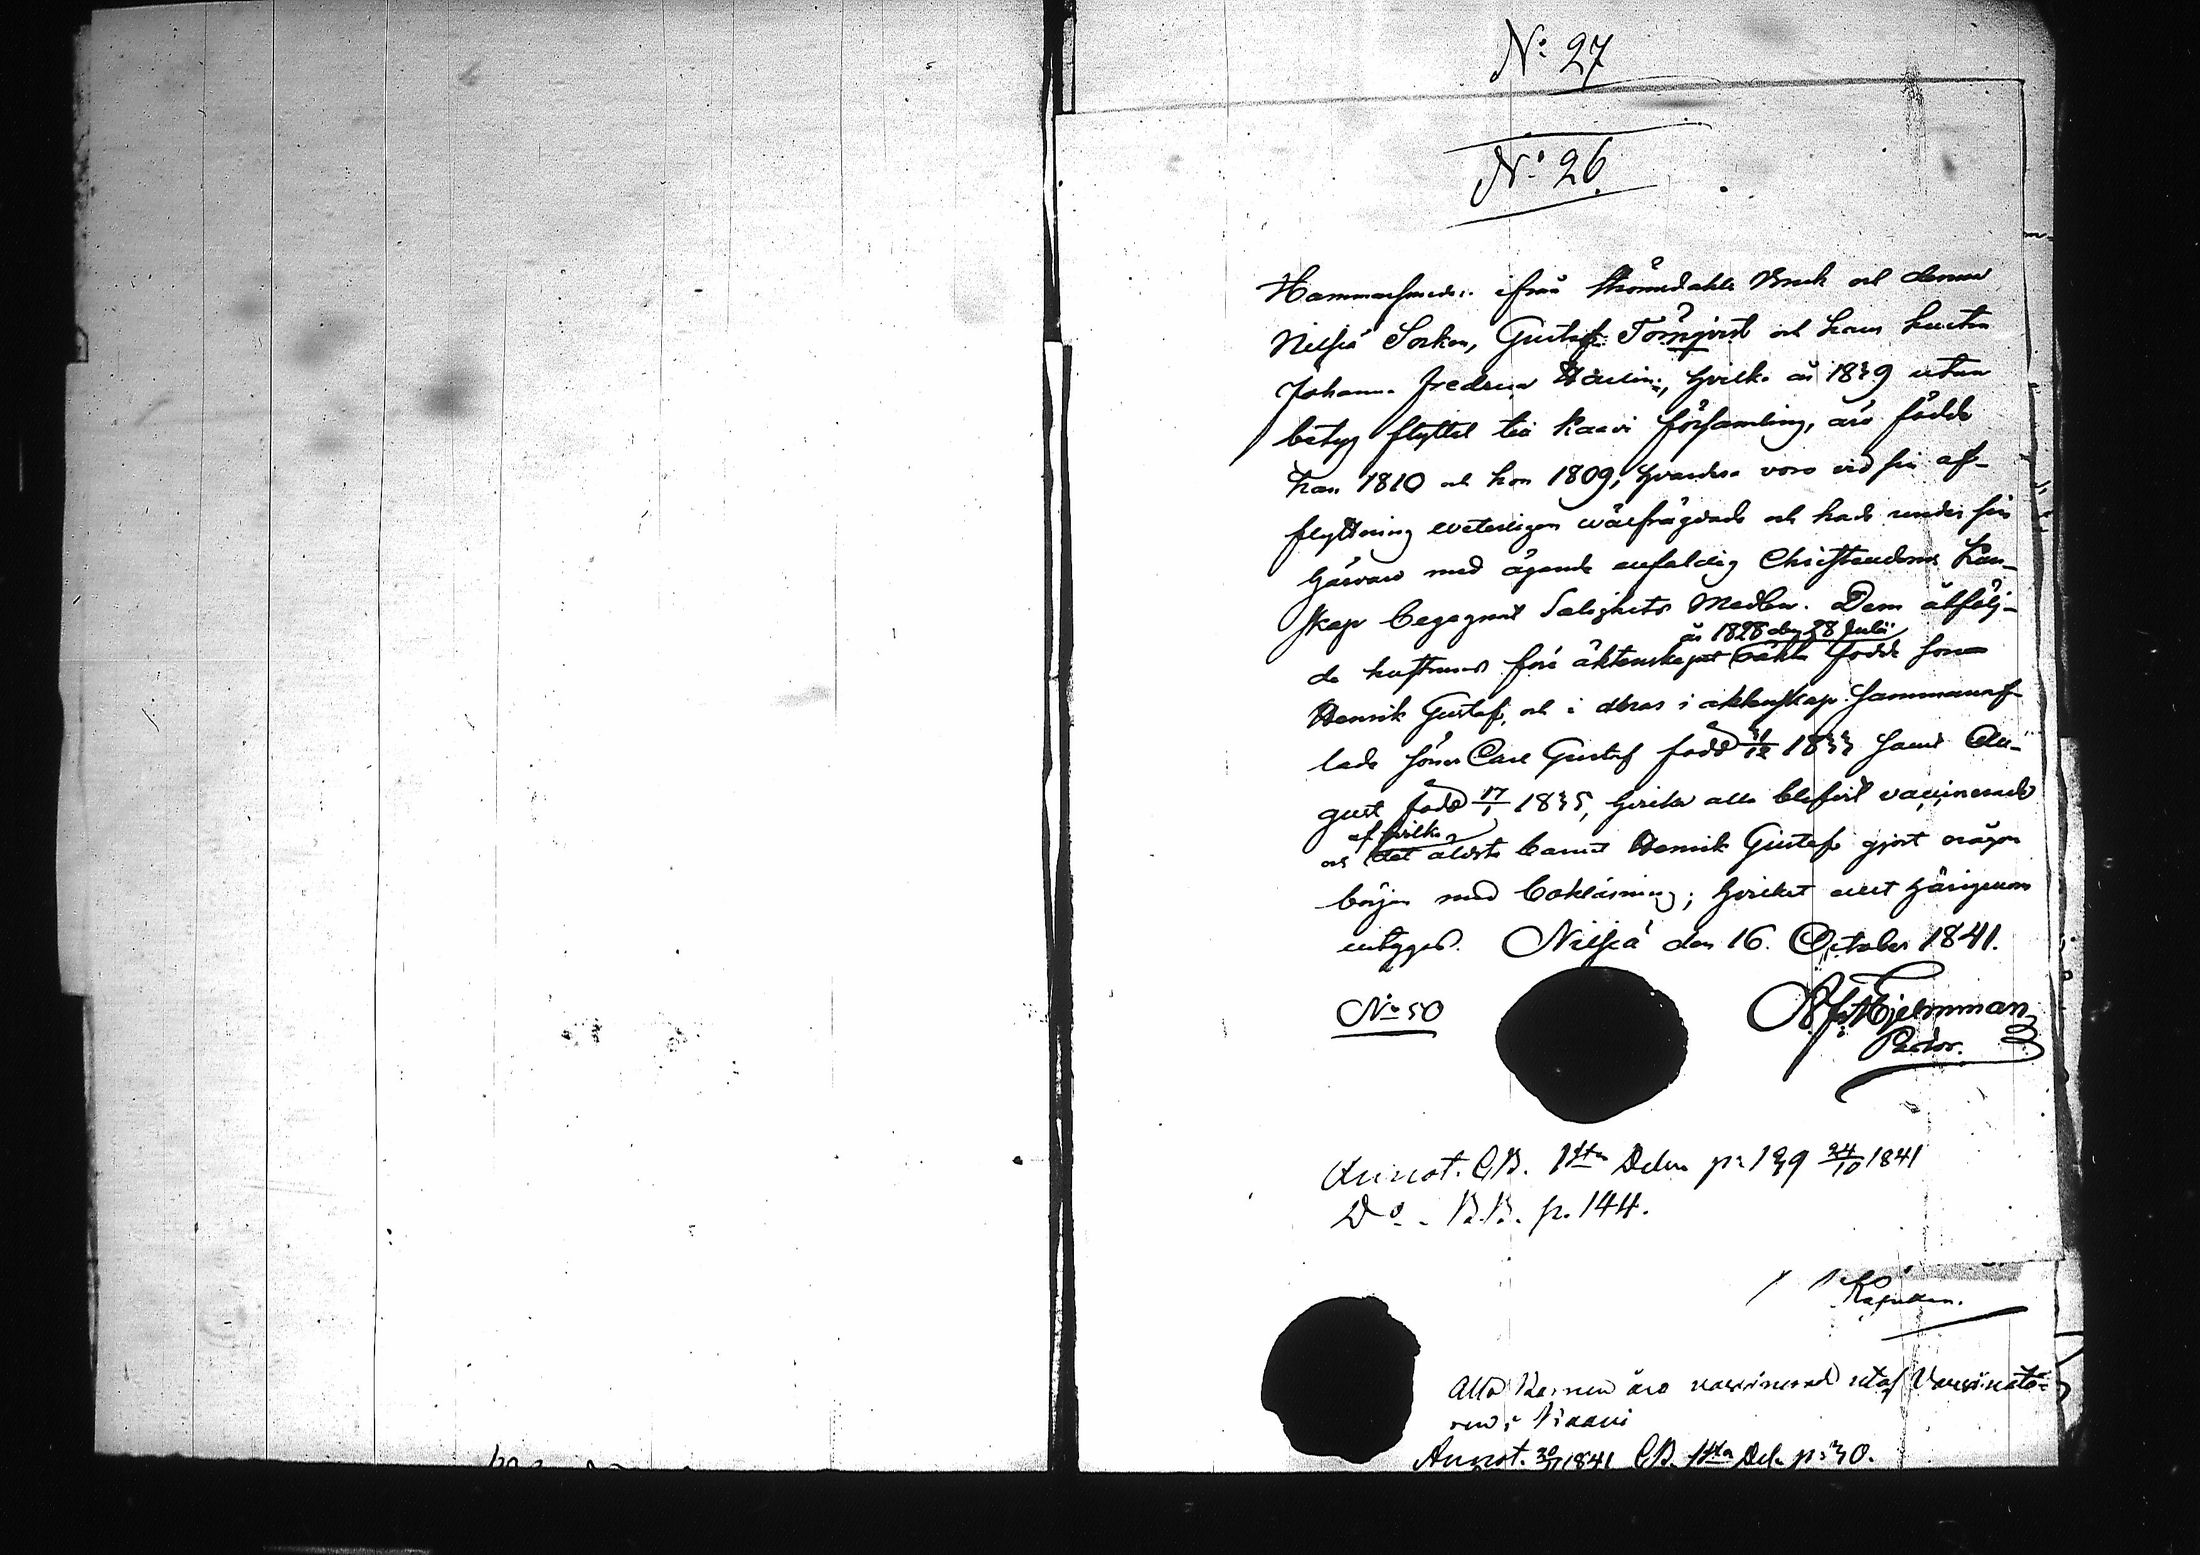 No 27
No 26
Hammarsmed: ifrån Strömsdahls Bruk och denna
Nilsiä Socken, Gustaf Törnqvist och hans hustru
Johanna Fredrica, hvilka år 1839 utan
betyg flyttat till Kaavi församling, äro födde
han 1810 och hon 1809; hvardera voro vid sin af-
flyttning veterligen wälfrägdade och hade under sin
härvaro med ägande enfaldig Christendoms kun-
skap begagnat Salighets Medlen. Dem åtfölj-
år 1828 den 28 Julii
de hustruns före äktenskapet födde son
Henrik Gustaf, och i deras i äktenskap sammanaf-
lade söner Carl Gustaf född 31/12 1833 samt Au-
gust född 17/1 1835, hvilka alla blifvit vaccinerade
af hvilka
och det äldsta barnet Henrik Gustaf gjort någon
början med bokläsning; hvilket allt härigenom
intygas. Nilsiä den 16. October 1841.
No 50
Hjelmman
Pastor.
Annot. CB. 1sta Delen p: 139 24/10 1841
Do - B.B. p. 144.
Kapellan.
Alla Barnen äro vaccinerade utaf Vaccinatö-
ren i Kaavi
Annot. 1841 CB. 1sta Del. p: 30.